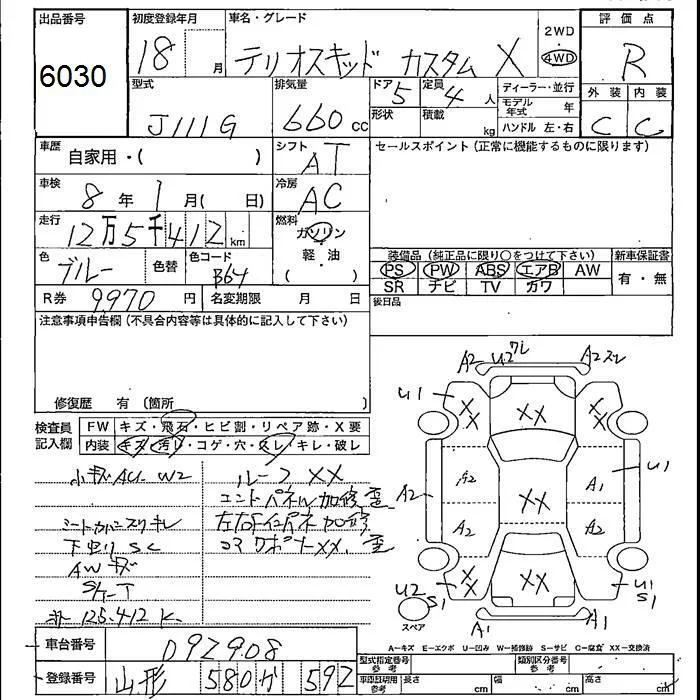 出品番号 6030
初度登録年月 18 月
車名・グレード テリオスキッド カスタム X
2WD 4WD
評価点 R
外装 内装
C C
型式 J111G
排気量 660 cc
ドア 5 定員 4 人
形状 積載 kg
ディーラー・並行
モデル年式 年
ハンドル 左・右
車歴 自家用・( )
シフト AT
セールスポイント(正常に機能するものに限ります)
車検 8 年 1 月( 日)
冷房 AC
走行 12万5千412 km
燃料 ガソリン 軽・油 ( )
色 ブルー 色替
色コード B64
装備品(純正品に限り○をつけて下さい) 新車保証書
PS PW ABS エアB AW 有・無
SR ナビ TV カワ
R券 9970 円 名変期限 月 日
後日品
注意事項申告欄(不具合内容等は具体的に記入して下さい)
修復歴 有(箇所 )
検査員記入欄 FW キズ・飛石・ヒビ割・リペア跡・X要
内装 キズ・汚レ・コゲ・穴・スレ・キレ・破レ
小キズ AU W2 ルーフ XX
シートカバースリキレ
下廻リ SC
AWキズ
S/K T
125.412 K
A2 U2 ワレ A2 スレ
U1 XX XX XX
A2 A2 A1 U1
XX
A2 A2
U2 S1 XX XX U1 S1
スペア A1 A1
A-キズ E-エクボ U-凹み W-補修跡 S-サビ C-腐食 XX-交換済
車台番号 092908
登録番号 山形 580 か 592
型式指定番号 参考 類別区分番号 参考
車庫証明用 参考 長さ cm 幅 cm 高さ cm